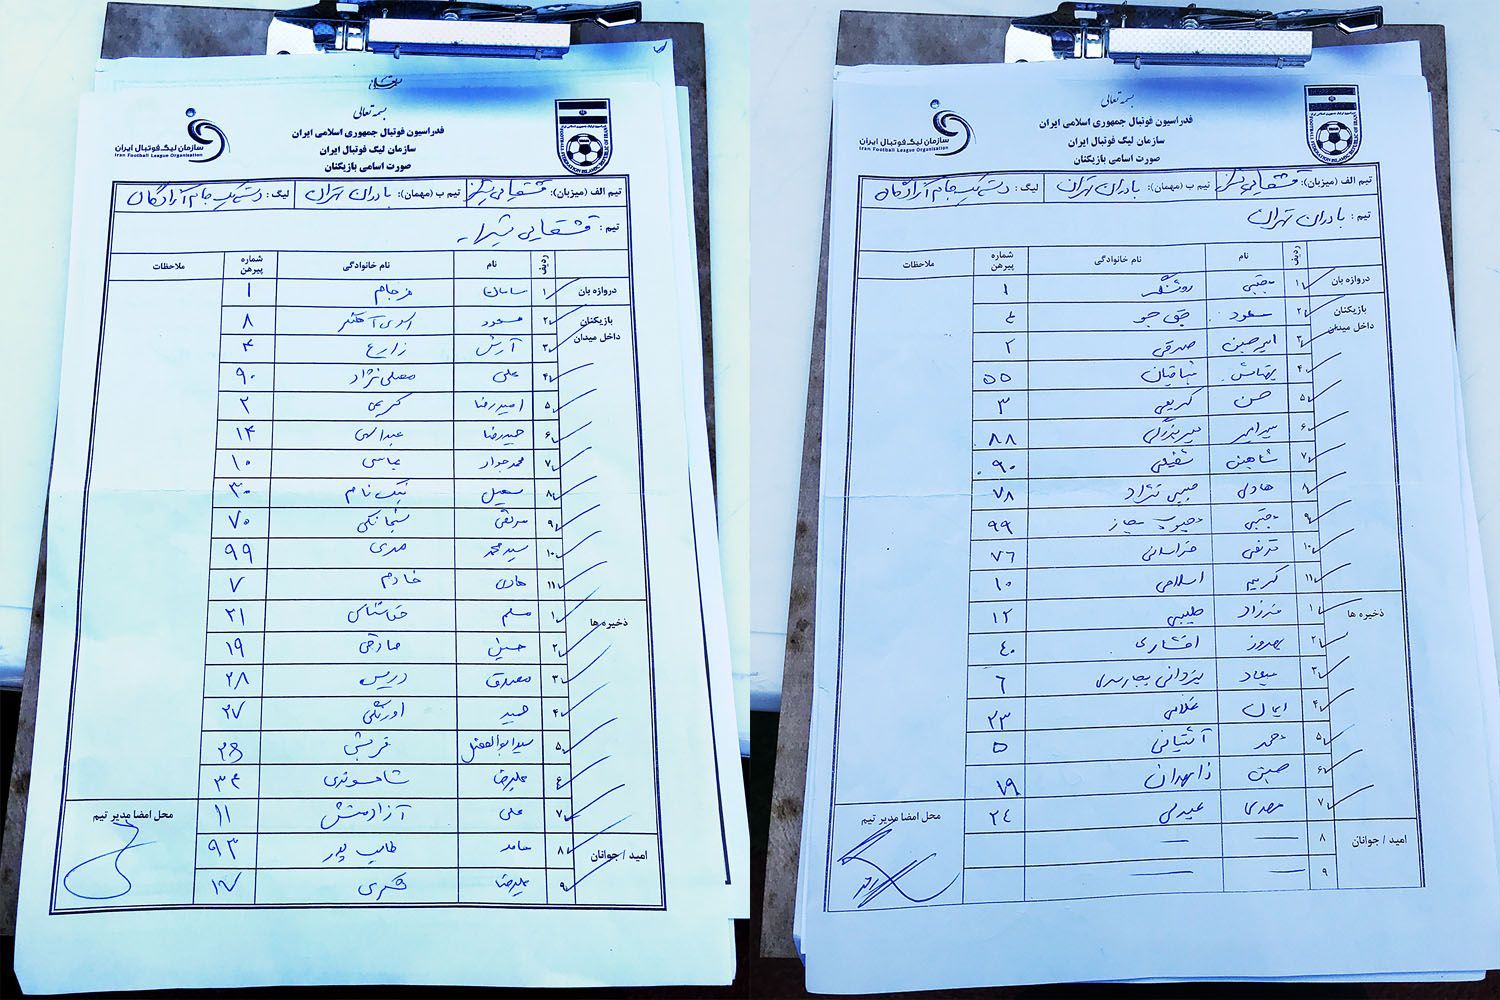 بسمه تعالی
فدراسیون فوتبال جمهوری اسلامی ایران
سازمان لیگ فوتبال ایران
صورت اسامی بازیکنان
سازمان لیگ فوتبال ایران
Iran Football League Organisation
تیم الف (میزبان): قشقایی شیراز تیم ب (مهمان): بادران تهران لیگ: دسته یک جام آزادگان
تیم: قشقایی شیراز
ردیف نام نام خانوادگی شماره پیرهن ملاحظات
دروازه بان ۱ سامان فرجام ۱
بازیکنان داخل میدان ۲ مسعود ۸
۳ آرش زارع ۴
۴ علی مصلی نژاد ۹۰
۵ امیدرضا کریمی ۲
۶ حمیدرضا عبدالهی ۱۴
۷ محمدجواد عباسی ۱۰
۸ سهیل نیک نام ۳۰
۹ ۷۰
۱۰ سید محمد مهدی ۹۹
۱۱ هادی خادم ۷
ذخیره ها ۱ مسلم ۲۱
۲ حسین صادقی ۱۹
۳ مصدق دریس ۲۸
۴ حمید اورنگی ۲۷
۵ سید ابوالفضل قریشی
۶ علیرضا شاهسوندی ۳۴
۷ علی آزادمنش ۱۱
امید / جوانان ۸ حامد طالب پور ۹۳
۹ علیرضا عسکری ۱۷
محل امضا مدیر تیم
بسمه تعالی
فدراسیون فوتبال جمهوری اسلامی ایران
سازمان لیگ فوتبال ایران
صورت اسامی بازیکنان
سازمان لیگ فوتبال ایران
Iran Football League Organisation
تیم الف (میزبان): قشقایی شیراز تیم ب (مهمان): بادران تهران لیگ: دسته یک جام آزادگان
تیم: بادران تهران
ردیف نام نام خانوادگی شماره پیرهن ملاحظات
دروازه بان ۱ مجتبی روشنگر ۱
بازیکنان داخل میدان ۲ مسعود حق جو ۴
۳ امیرحسین صدقی ۲
۴ ۵۵
۵ حسن کریمی ۳
۶ ۸۸
۷ شاهین شفیعی ۹۰
۸ هادی حبیبی نژاد ۷۸
۹ مجتبی محبوب مجاز ۹۹
۱۰ مرتضی خراسانی ۷۶
۱۱ کریم اسلامی ۱۰
ذخیره ها ۱ فرزاد طیبی ۱۲
۲ بهروز افشاری ۴۰
۳ میعاد یزدانی ۶
۴ ایمان غلامی ۲۳
۵ محمد آشتیانی ۵
۶ ۷۹
۷ مهدی عبدلی ۲۴
امید / جوانان ۸
۹
محل امضا مدیر تیم